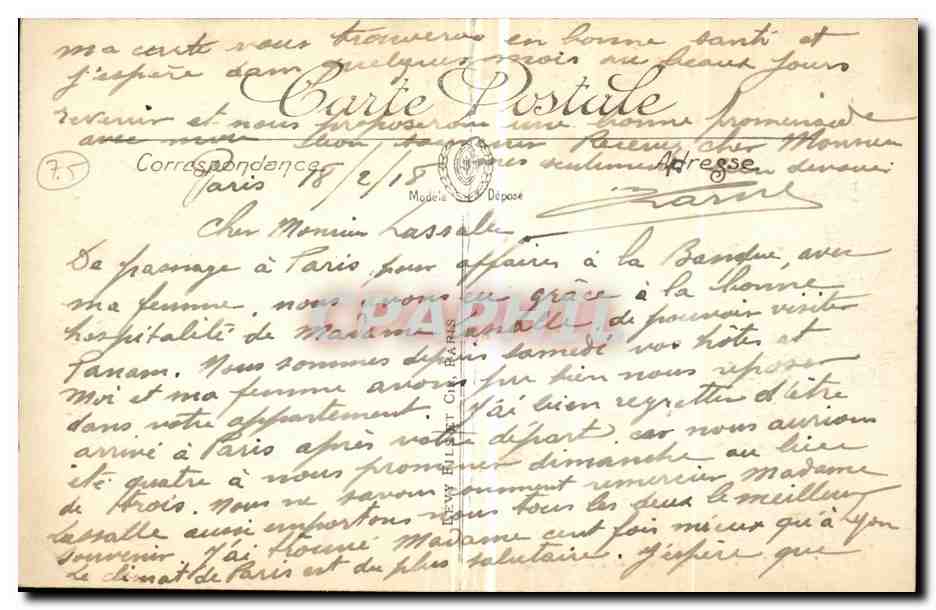 ma carte vous trouvera en bonne santé et
j'espère dans quelques mois au beaux jours
Carte Postale
revenir et nous proposerons une bonne promenade
avec mon Recevez cher Monsieur
Correspondance
Adresse
7.5
Paris 18/2/18
seulement devoué
Modèle Déposé
Cher Monsieur Lassalle
De passage à Paris, pour affaires à la Banque, avec
ma femme, nous avons eu grâce à la bonne
hospitalité de Madame Lassalle, de pouvoir visiter
Panam. Nous sommes depuis samedi vos hôtes et
moi et ma femme avons pu bien nous reposer
dans votre appartement. J'ai bien regretter d'être
arrivé à Paris après votre départ car nous aurions
été quatre à nous promener dimanche au lieu
de trois. Nous ne savons comment remercier Madame
Lassalle aussi emportons nous tous les deux le meilleur
souvenir. J'ai trouvé Madame cent fois mieux qu'à Lyon
Le climat de Paris est du plus salutaire. J'espère que
LEVY FILS ET CIE PARIS
CPARAMA